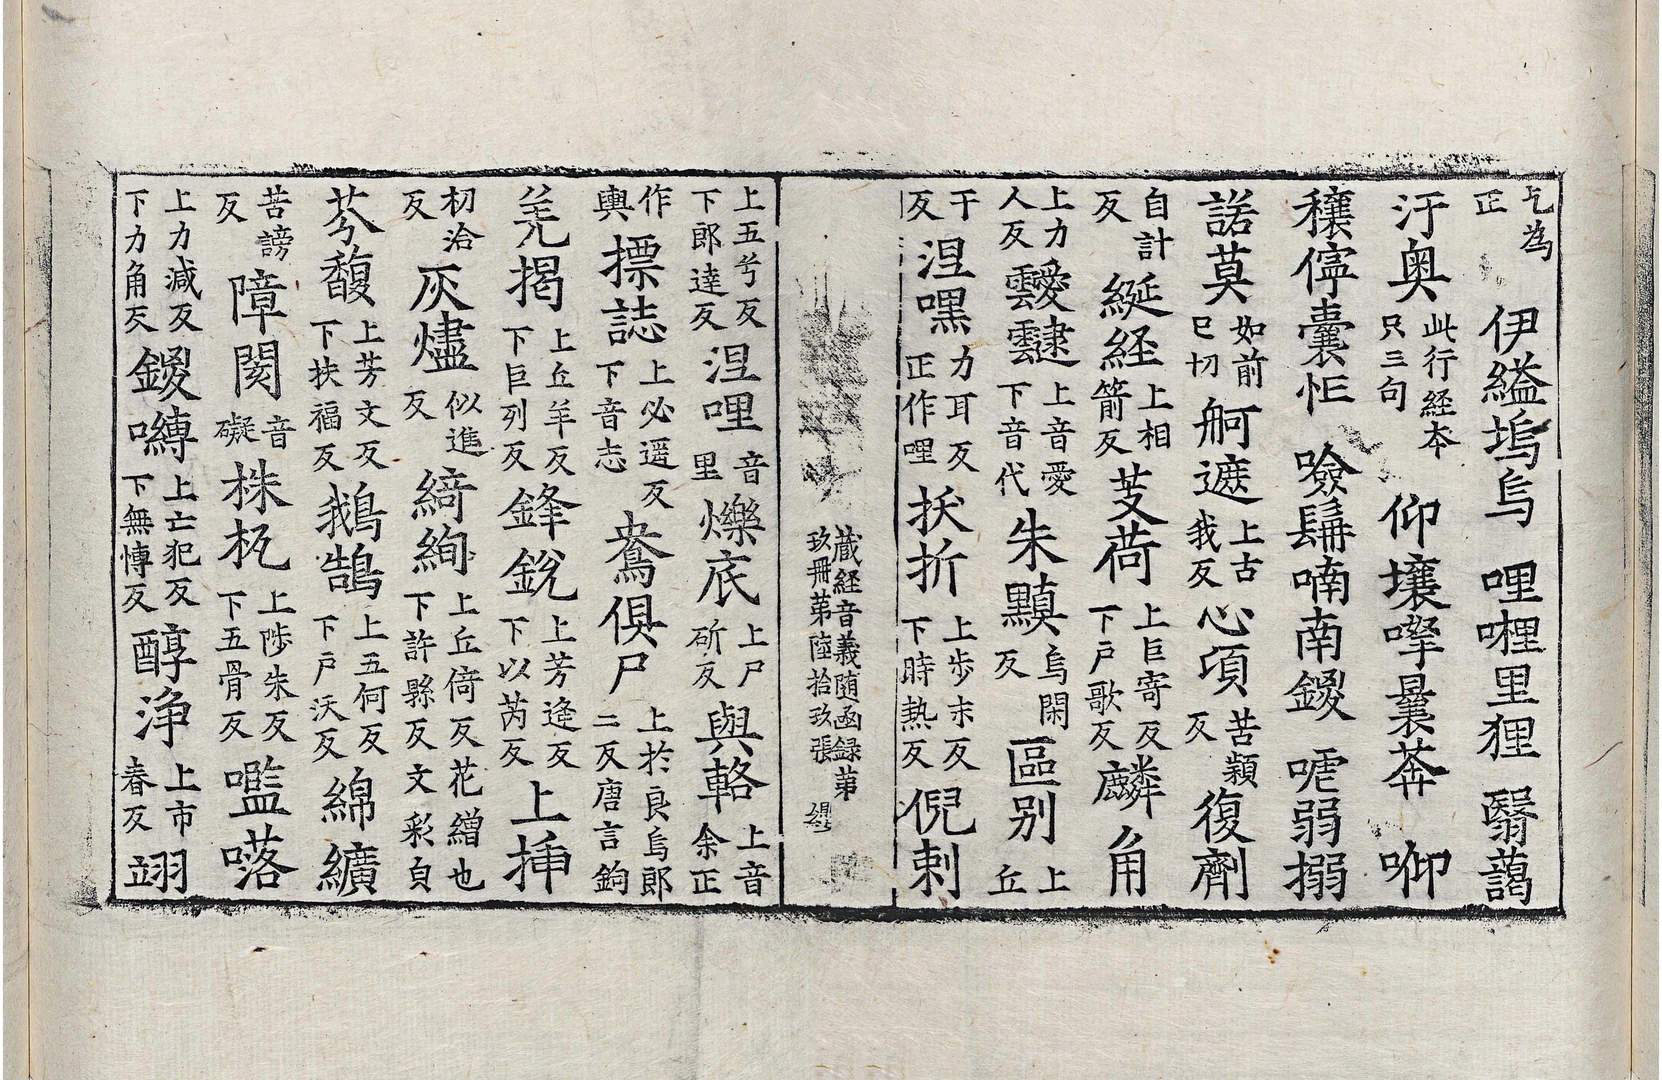 乞為正 伊縊塢烏 哩𠼝里狸 翳藹
汙奥 此行経本只三句 仰壤㘄曩莾 㖿
穰儜囊㤁 噞髴喃南錣 唬弱搦
諾莫 如前已切 舸遮 上古我反 心項 苦顈反 復劑
自計反 綖経 上相箭反 芰荷 上巨寄反下戸歌反 麟角
上力人反 靉靆 上音愛下音代 朱黰 烏閑反 區别 上丘
干反 涅嘿 力耳反正作哩 扷折 上歩末反下時熱反 倪剌
蔵経音義随函録第玖冊第陸拾玖張
上五兮反下郎達反 涅哩 音里 爍底 上尸斫反 與輅 上音余正
作輿 摽誌 上必遥反下音志 鴦俱尸 上於良烏郎二反唐言鉤
羌揭 上丘羊反下巨列反 鋒鋭 上芳逢反下以芮反 上揷
初洽反 灰燼 似進反 綺絢 上丘倚反花繒也下許縣反文彩皃
芬馥 上芳文反下扶福反 鵝鵠 上五何反下戸沃反 綿纊
苦謗反 障閡 音礙 株杌 上陟朱反下五骨反 嚂㗉
上力減反下力角反 錣嚩 上亡犯反下無愽反 醇浄 上市春反 翊